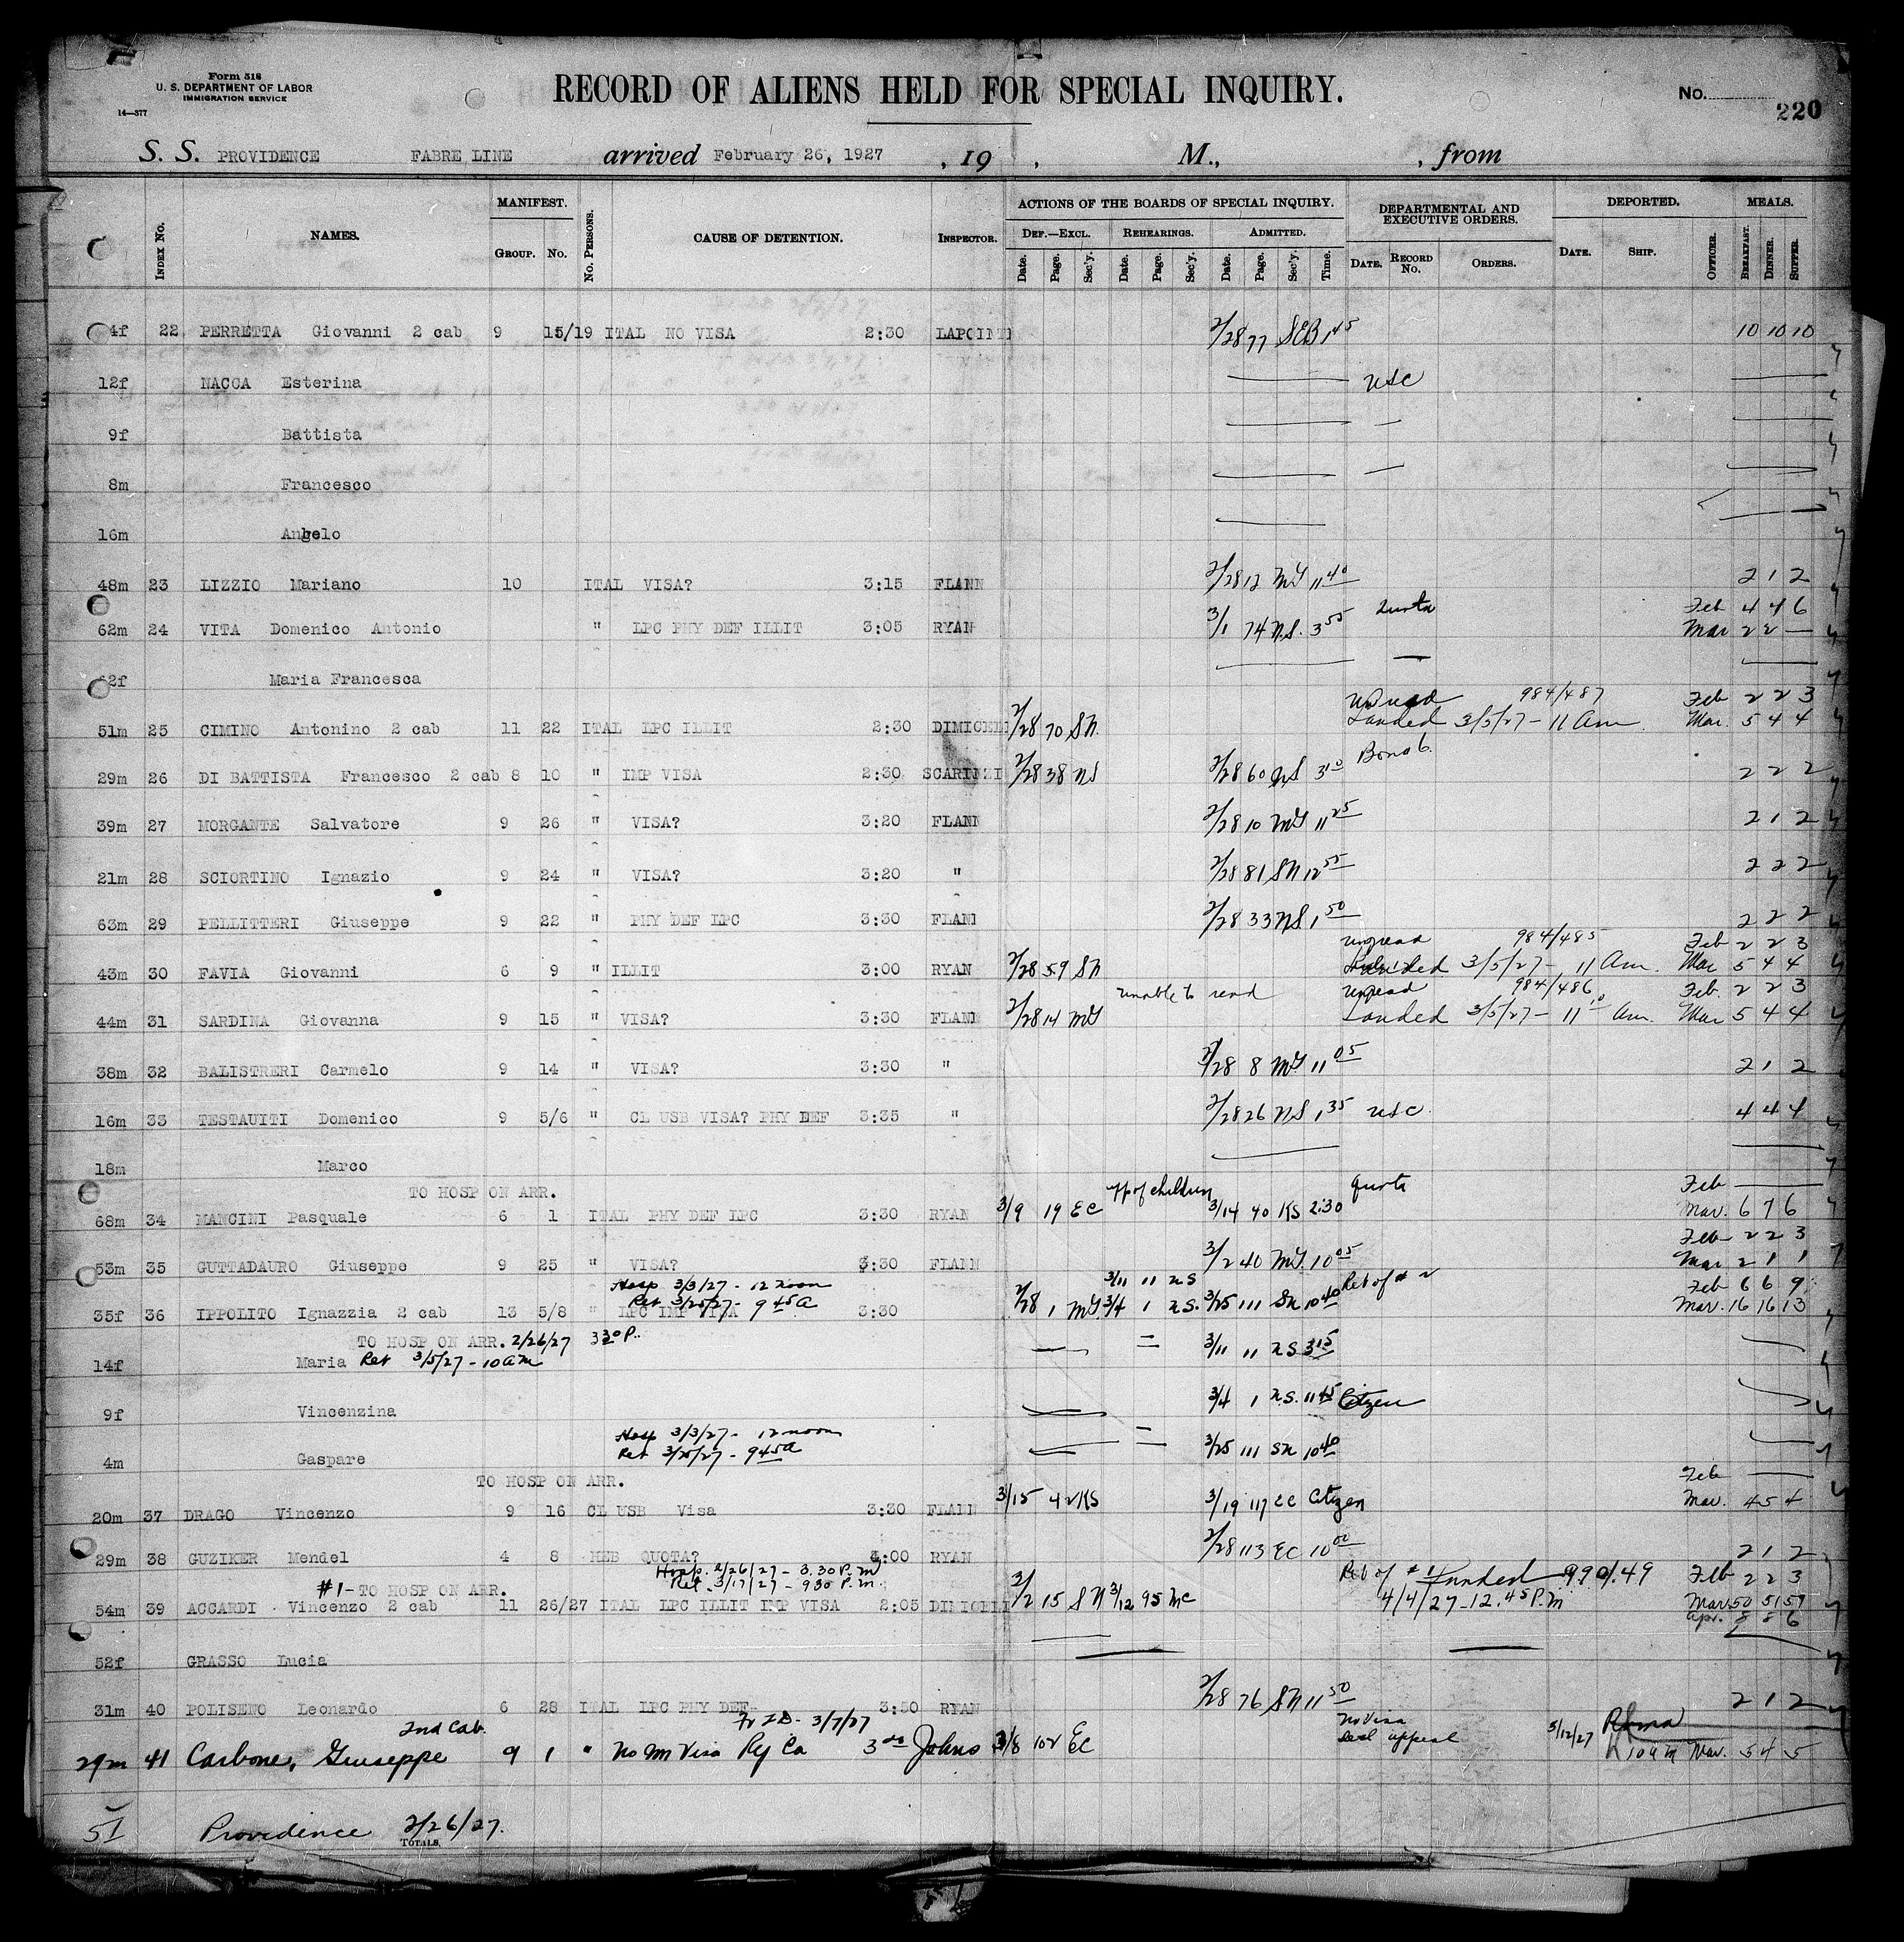 Form 518
U. S. DEPARTMENT OF LABOR
IMMIGRATION SERVICE
14—377
RECORD OF ALIENS HELD FOR SPECIAL INQUIRY.
No. 220
S. S. PROVIDENCE FABRE LINE arrived February 26, 1927 , 19 , M., , from
INDEX No. NAMES. MANIFEST. GROUP. No. No. PERSONS. CAUSE OF DETENTION. INSPECTOR. ACTIONS OF THE BOARDS OF SPECIAL INQUIRY. DEF.—EXCL. Date. Page. Sec'y. REHEARINGS. Date. Page. Sec'y. ADMITTED. Date. Page. Sec'y. Time. DEPARTMENTAL AND EXECUTIVE ORDERS. DATE. RECORD No. ORDERS. DEPORTED. DATE. SHIP. OFFICER. MEALS. BREAKFAST. DINNER. SUPPER.
4f 22 PERRETTA Giovanni 2 cab 9 15/19 ITAL NO VISA 2:30 LAPOINTE 2/28 77 SEB 1 45 10 10 10
12f NACCA Esterina USC
9f Battista
8m Francesco
16m Angelo
48m 23 LIZZIO Mariano 10 ITAL VISA? 3:15 FLANN 2/28 12 MG 11 40 2 1 2
Quota Feb 4 4 6
62m 24 VITA Domenico Antonio " LPC PHY DEF ILLIT 3:05 RYAN 3/1 74 N.S. 3 55 Mar 2 2 —
62f Maria Francesca
984/487 Feb 2 2 3
51m 25 CIMINO Antonino 2 cab 11 22 ITAL LPC ILLIT 2:30 DIMICELI 2/28 70 SN. Landed 3/5/27 - 11 Am. Mar. 5 4 4
29m 26 DI BATTISTA Francesco 2 cab 8 10 " IMP VISA 2:30 SCARINZI 2/28 38 NS 2/28 60 NS 3 10 2 2 2
39m 27 MORGANTE Salvatore 9 26 " VISA? 3:20 FLANN 2/28 10 MG 11 25 2 1 2
21m 28 SCIORTINO Ignazio 9 24 " VISA? 3:20 " 2/28 81 SN 12 55 2 2 2
63m 29 PELLITTERI Giuseppe 9 22 " PHY DEF LPC 3:30 FLANN 2/28 33 NS 1 50 2 2 2
984/485 Feb 2 2 3
43m 30 FAVIA Giovanni 6 9 " ILLIT 3:00 RYAN 2/28 59 SN Landed 3/5/27 - 11 Am. Mar 5 4 4
Unable to read 984/486 Feb. 2 2 3
44m 31 SARDINA Giovanna 9 15 " VISA? 3:30 FLANN 2/28 14 MG Landed 3/5/27 - 11 10 Am. Mar 5 4 4
38m 32 BALISTRERI Carmelo 9 14 " VISA? 3:30 " 2/28 8 MG 11 05 2 1 2
16m 33 TESTAUITI Domenico 9 5/6 " CL USB VISA? PHY DEF 3:35 " 2/28 26 NS 1 35 USC. 4 4 4
18m Marco
TO HOSP ON ARR. of children Quota Feb —
68m 34 MANCINI Pasquale 6 1 ITAL PHY DEF LPC 3:30 RYAN 3/9 19 EC 3/14 40 KS 2:30 Mar. 6 7 6
Feb 2 2 3
53m 35 GUTTADAURO Giuseppe 9 25 " VISA? 3:30 FLANN 3/2 40 MG. 10 05 Mar 2 1 1
Hosp 3/3/27 - 12 noon 3/11 11 NS Feb 6 6 9
Ret 3/25/27 - 9 45 a
35f 36 IPPOLITO Ignazzia 2 cab 13 5/8 " LPC IMP VISA 3:30 2/28 1 MG. 3/4 1 N.S. 3/25 111 SN 10 40 Mar. 16 16 13
TO HOSP ON ARR. 2/26/27 3 30 P.
14f Maria Ret 3/5/27 - 10 am 3/11 11 NS 3 15
9f Vincenzina 3/4 1 N.S. 11 45 Citizen
Hosp 3/3/27 - 12 noon
Ret 3/25/27 - 9 45 a
4m Gaspare 3/25 111 SN 10 40
TO HOSP ON ARR. Feb —
20m 37 DRAGO Vincenzo 9 16 CL USB Visa 3:30 FLANN 3/15 42 KS 3/19 117 EC Citizen Mar. 4 5 4
29m 38 GUZIKER Mendel 4 8 HEB QUOTA? 4:00 RYAN 2/28 113 EC 10 00 2 1 2
Hosp. 2/26/27 - 3.30 P.M
#1- TO HOSP ON ARR. Ret. 3/17/27 - 9 30 P.m. Landed Feb 2 2 3
54m 39 ACCARDI Vincenzo 2 cab 11 26/27 ITAL LPC ILLIT IMP VISA 2:05 DIMICELI 3/2 15 SN 3/12 95 MC 4/4/27 - 12.45 P.M Mar 50 51 59
Apr. 8 8 6
52f GRASSO Lucia
31m 40 POLISENO Leonardo 6 28 ITAL LPC PHY DEF 3:50 RYAN 2/28 76 SN 11 50 2 1 2
2nd Cab. 3/7/27 No Visa
29m 41 Carbone, Giuseppe 9 1 " No Im Visa 3 00 Johns 3/8 102 EC appeal 3/12/27 Mar. 5 4 5
51 Providence 2/26/27.
TOTALS,